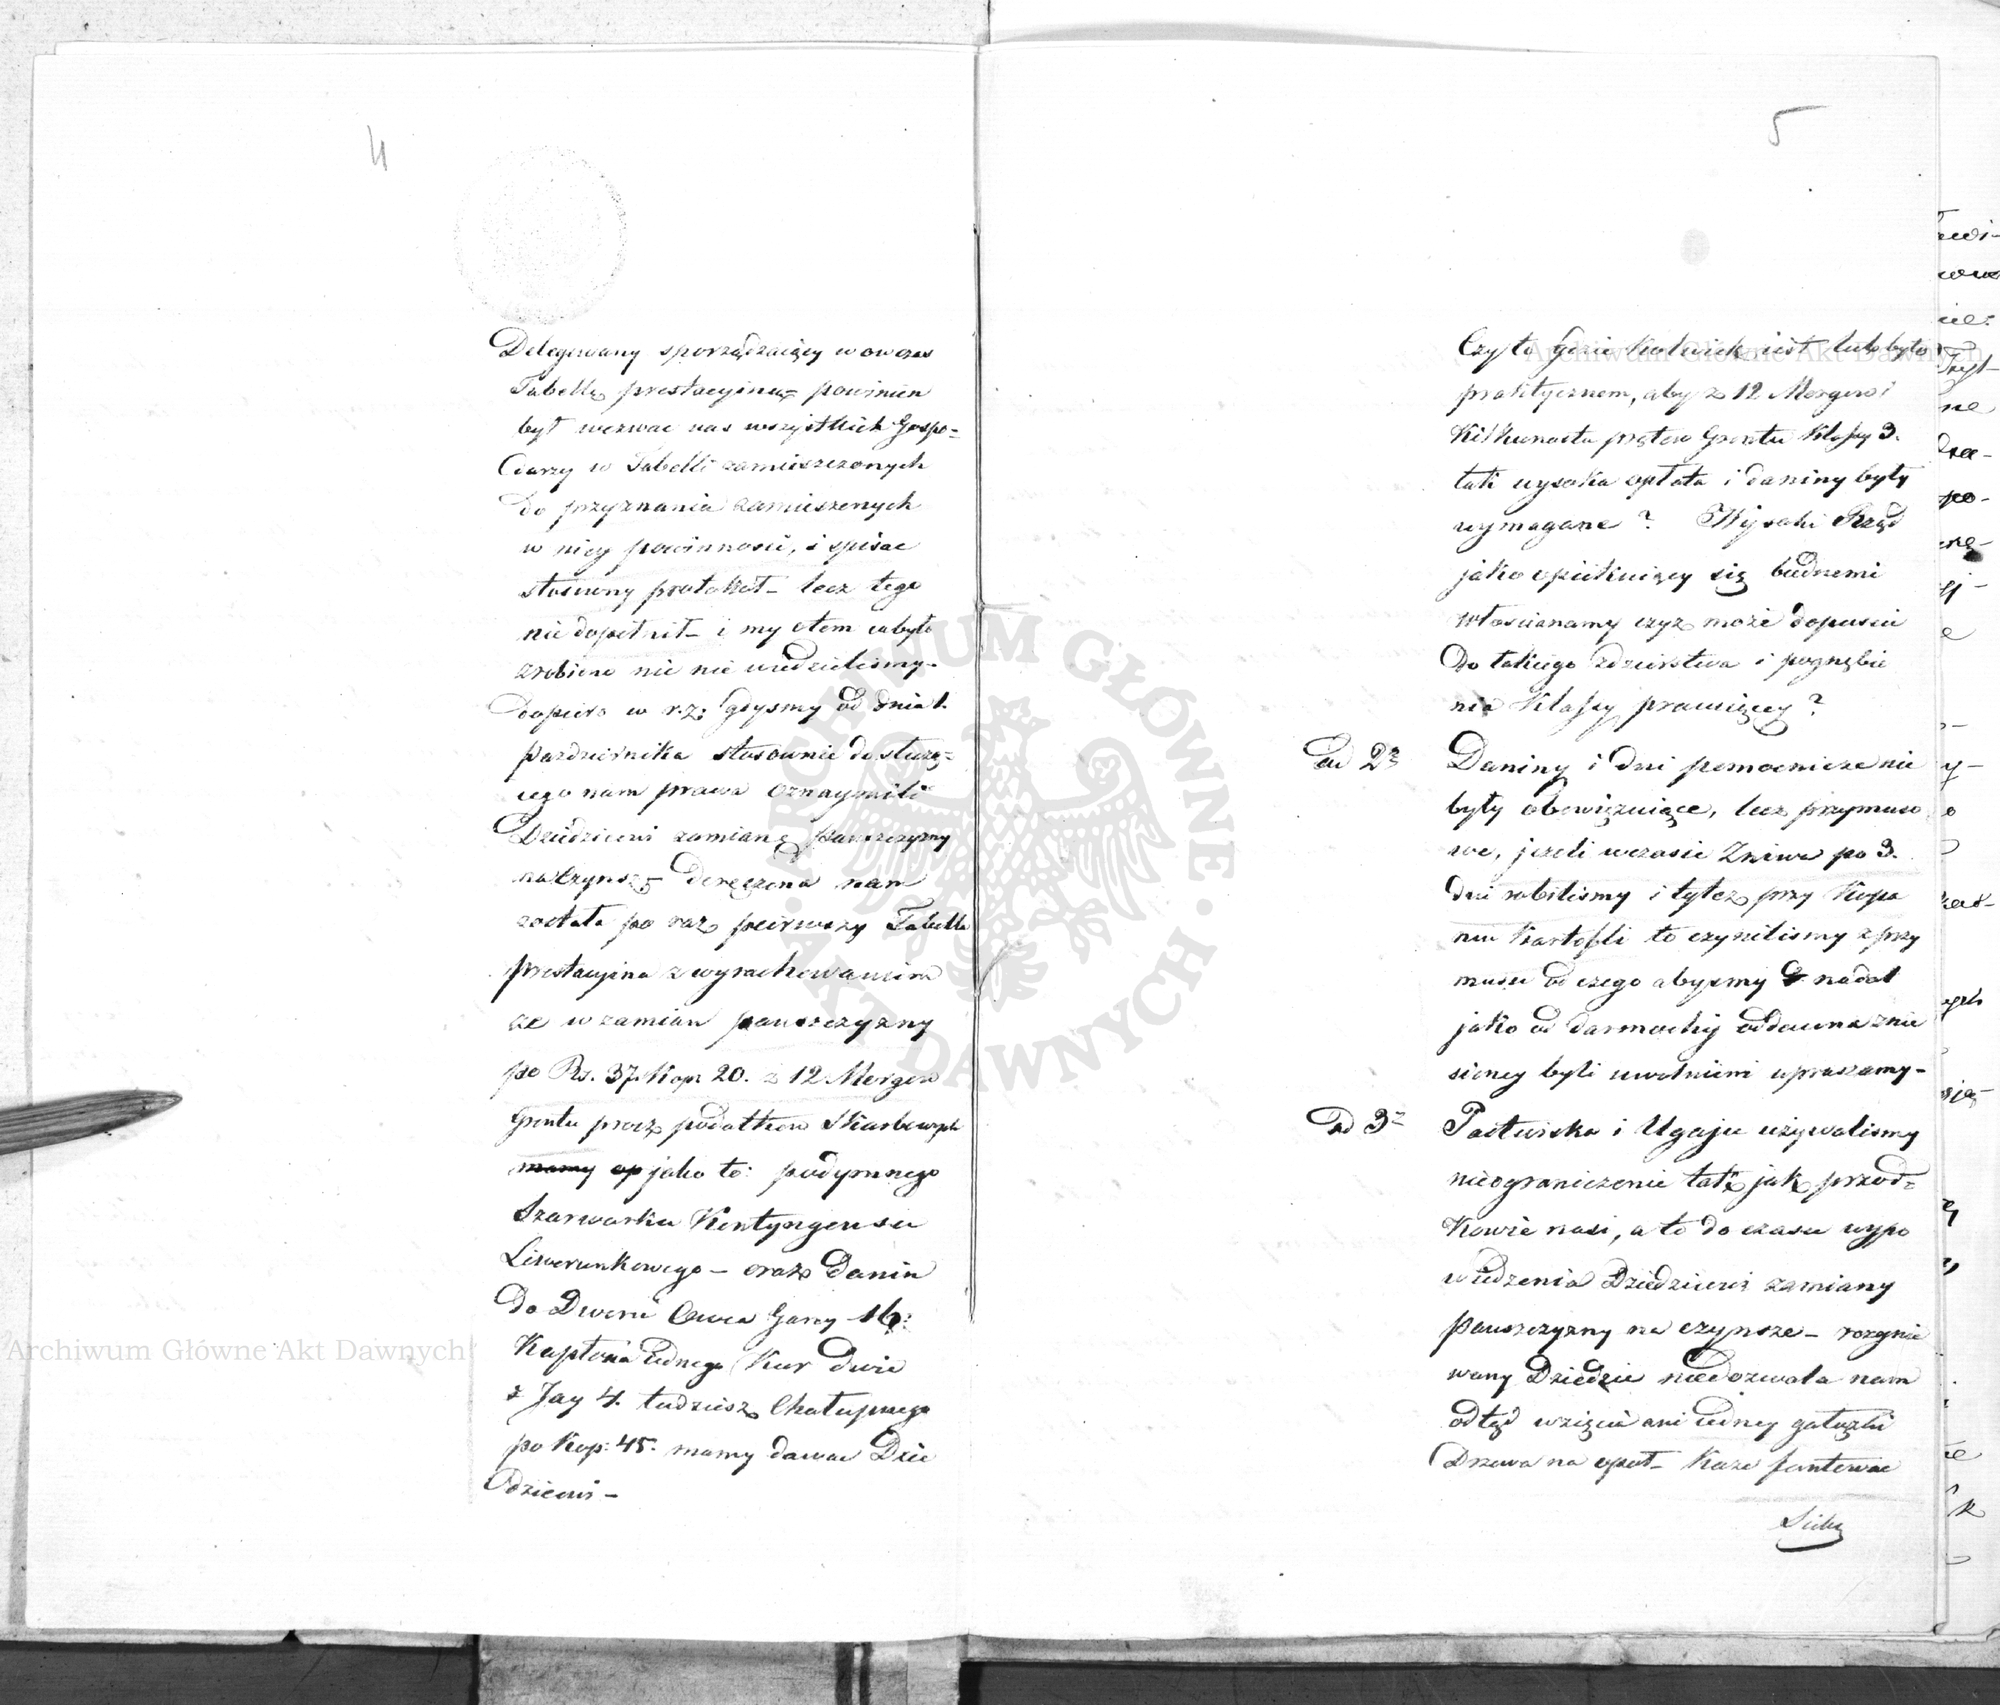 4
Delegowany sporządzaiący wowczas
Tabellę prestacyiną powinien
był wezwac nas wszystkich Gospo=
darzy w Tabelli zamieszczonych
do przyznania zamieszczonych
w niey powinnosci, i spisac
stosowny protokół – lecz tego
nie dopełnił – i my otem cobyło
zrobione nic nie wiedzielismy –
dopiero w r. z: gdysmy od dnia 1.
Pazdziernika stosownie do służą=
cego nam prawa oznaymili
Dziedzicowi zamianę pańszczyzny
na czynsz – doręczona nam
została po raz pierwszy Tabella
prestacyina z wyrachowaniem
że w zamian pauszczyzny
po Rs. 37 Kop 20. z 12 Morgow
Gruntu procz podatkow Skarbowych
mamy op jako to: podymnego
Szarwarku Kontyngensu
Liwerunkowego – oraz danin
do Dworu Owsa Garcy 16:
Kapłona iednego Kur dwie
i Jay 4. tudziesz Chałupnego
po Kop: 45. mamy dawac Dzie
dzicowi –
5
Czyto gdzie kolwiek iest lub było
praktycznem, aby z 12 Morgow i
Kilkunastu prętow Gruntu Klassy 3.
tak wysoka opłata i daniny były
wymagane? Wysoki Rząd
jako opiekuiący się biednemi
włoscianamy czyż może dopuscic
do takiego zdzierstwa i pognębie
nia Klassy pracuiącey?
ad 2º Daniny i dni pomocnicze nie
były obowiązuiące, lecz przymuso
we, jezeli wczasie Zniwa po 3.
dni robilismy i tyleż przy Kopa
niu Kartofli to czynilismy z przy
musu od czego abysmy nadal
jako od darmochy oddawna znie
sioney byli uwolnieni upraszamy –
ad 3º Pastwiska i Ugaju używalismy
nieograniczenie tak jak przod=
kowie nasi, a to do czasu wypo
wiedzenia Dziedzicowi zamiany
pauszczyzny na czynsze – rozgnie
wany Dziedzic niedozwala nam
odtąd wziąść ani iedney gałązki
Drzewa na opał – Kaze fantowac
Archiwum Główne Akt Dawnych
Archiwum Główne Akt Dawnych
ARCHIWUM GŁÓWNE
AKT DAWNYCH